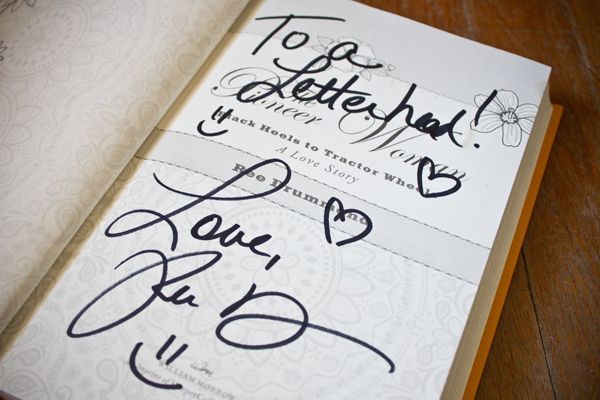 To a
Letterhead!
The
Pioneer Woman
Black Heels to Tractor Wheels
A Love Story
Ree Drummond
Love,
Ree D
WILLIAM MORROW